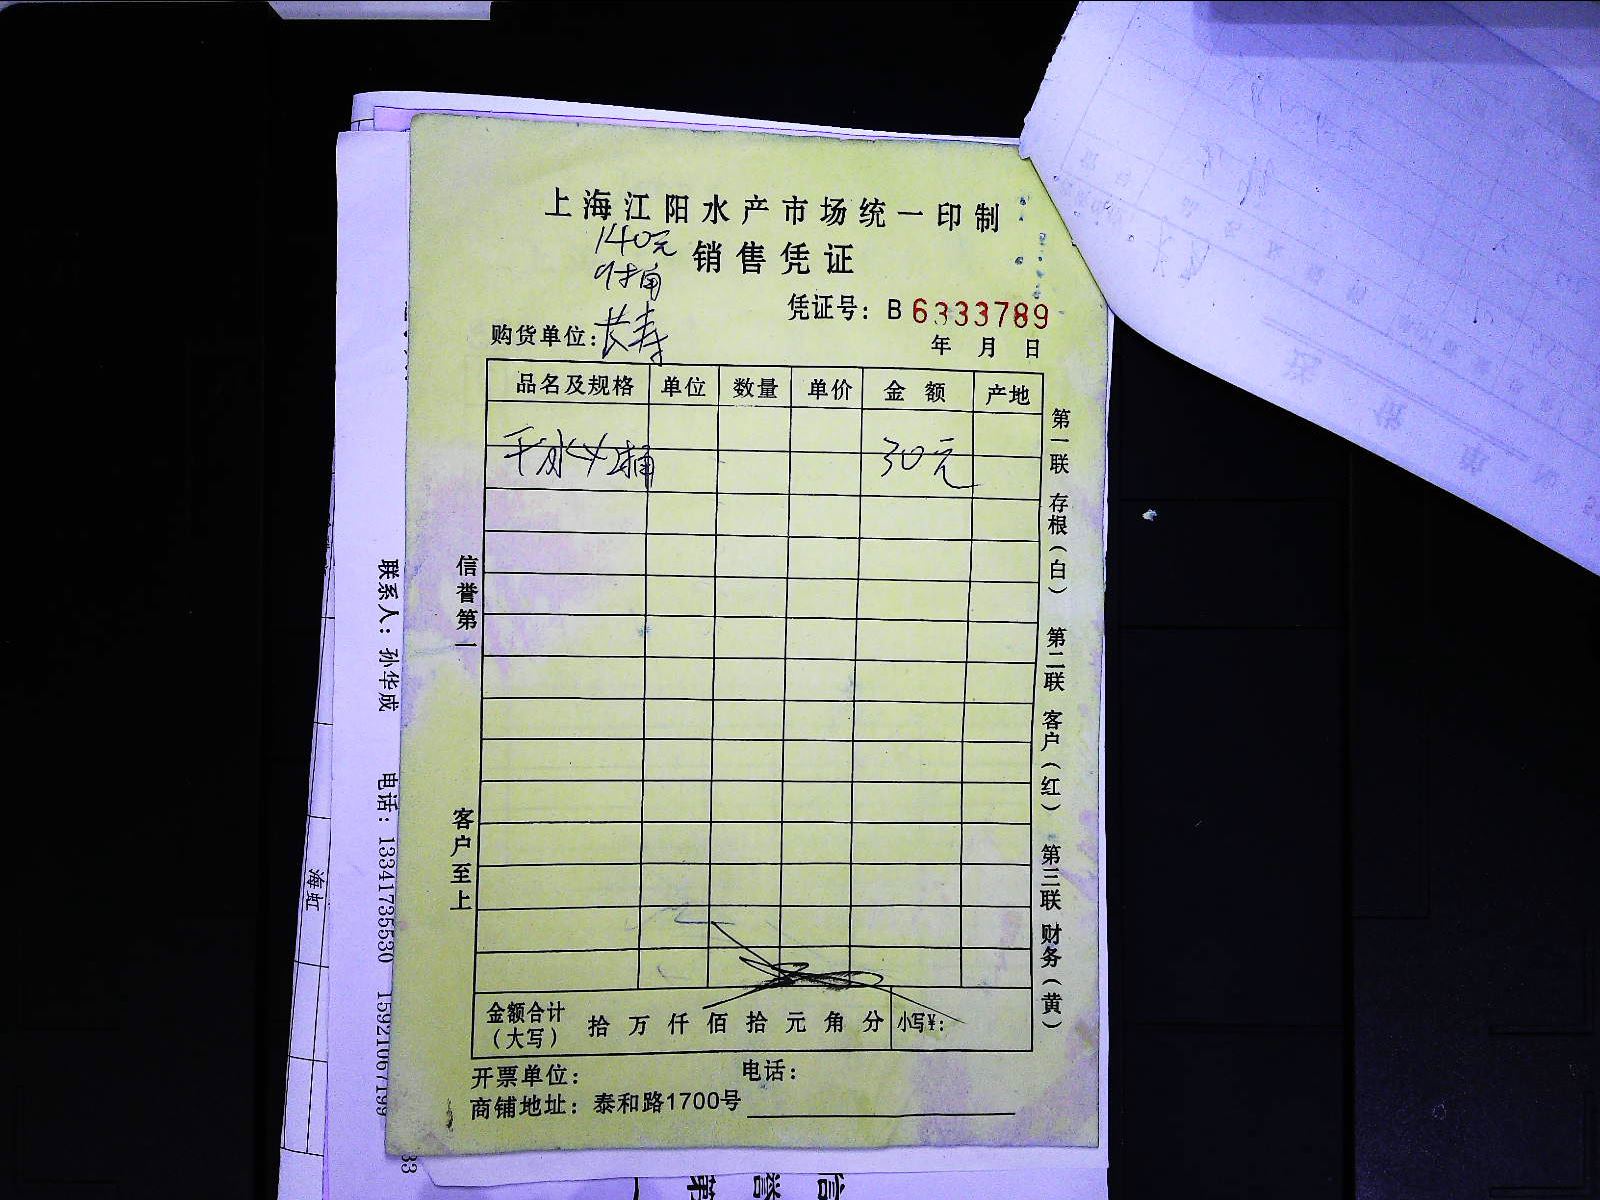 上海江阳水产市场统一印制
140元
销售凭证
凭证号：B 6333789
购货单位：长寿
年 月 日
品名及规格 单位 数量 单价 金额 产地
30元
第一联 存根（白） 第二联 客户（红） 第三联 财务（黄）
信誉第一
客户至上
金额合计（大写） 拾 万 仟 佰 拾 元 角 分 小写¥：
开票单位： 电话：
商铺地址：泰和路1700号
联系人：孙华成 电话：13341735530 15921067199